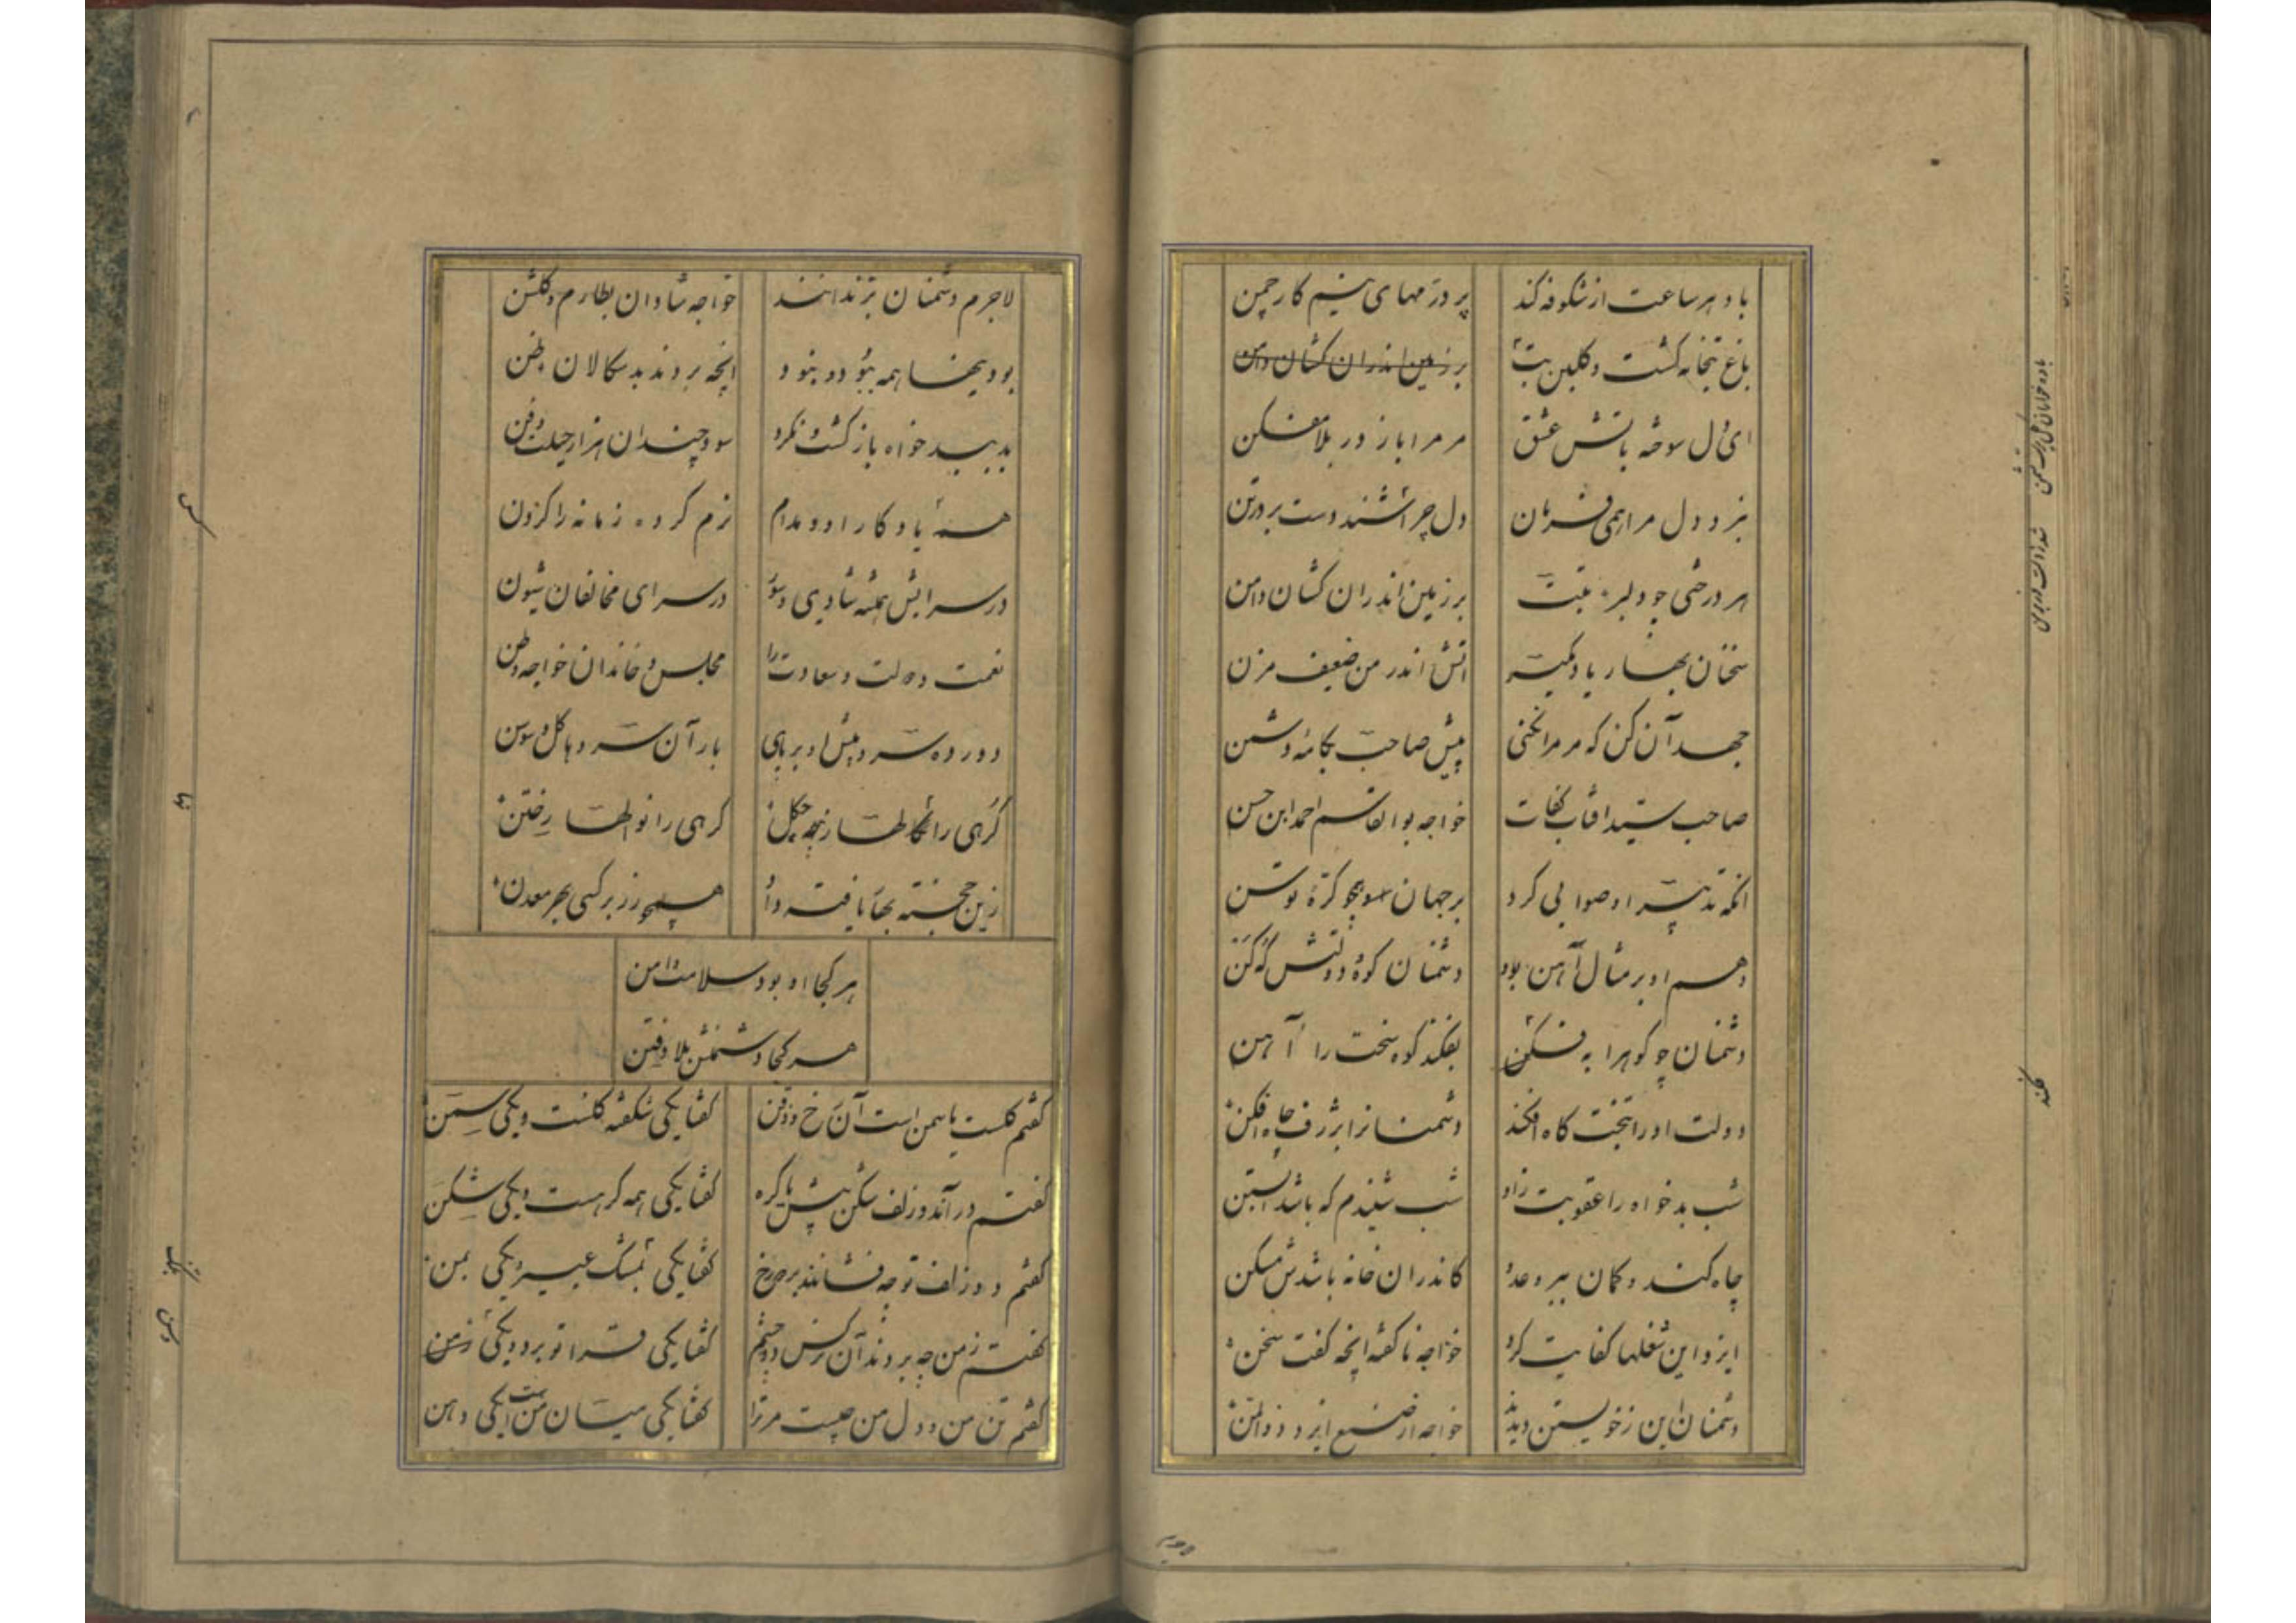 باد هر ساعت از شکوفه کند
پر درمهای سیم کار چمن
باغ بتخانه کشت و کلبن بت
برزمین اندران کشان دامن
ای دل سوخته باتش عشق
مر مرا باز در بلا مفکن
نبرد دل مرا همی فرمان
دل چرا شتند دست بردتن
هر درختی چو دلبر بتیست
برزمین اندران کشان دامن
سخنان بهار یاد مکیر
اتش اندر من ضعیف مزن
جهد آن کن که مر مرا نکنی
پیش صاحب بکامه دشمن
صاحب سید افتاب کفات
خواجه بوالقاسم احمد ابن حسن
انکه تدبیر او صوابی کرد
برجهان همچو کره توسن
وهم او بر مثال آهن بود
دشمنان کوه و دولتش که کن
دشمنان چو کوهرا بفکن
بفکند کوه سخت را آهن
دولت او را بتخت کاه افکند
دشمنانرا بژرف چاه افکن
شب بدخواه را عقوبت زاد
شب شنیدم که باشد ابستن
چاه کند و کمان ببرد عدو
کاندران خانه باشدش مسکن
ایزد این شغلها کفایت کرد
خواجه ناکفته انچه کفت سخن
دشمنان این زخویستن دیدند
خواجه از صنع ایزد ذوالمن
لاجرم دشمنان بزندانند
خواجه شادان بطارم و کلشن
بود یخها همه ببود و نبود
انچه بردند بدسکالان ظن
بد ببدخواه بازکشت و نکرد
سود چندان هزار حیلت و فن
همه یاد کار او و مدام
نرم کرده زمانه را کردن
در سرایش همیشه شادی و سور
در سرای مخالفان شیون
نعمت و دولت و سعادت را
مجلس و خاندان خواجه وطن
دو رده سرو پیش او بر پای
بار آن سرو ها کل و سوسن
کرهی را نکارها ز چکل
کرهی را نواها ز ختن
زین خجسته بها یافته داد
همچو زر بر کسی بهر معدن
هر کجا او بود سلامت و امن
هر کجا دشمنش بلا و فتن
کفتم کلست یا سمن است آن رخ و ذقن
کفتا یکی شکفته کلست و یکی سمن
کفتم در آن دو زلف شکن بیش یا کره
کفتا یکی همه کرهست و یکی شکن
کفتم دو زلف تو چه فشانند بر دو رخ
کفتا یکی بمشک عبیر و یکی بمن
کفتم زمن چه بردند آن نرکس دو چشم
کفتا یکی قرار تو برد و یکی زمن
کفتم تن من و دل من چیست مر ترا
کفتا یکی میان منست یکی دهن